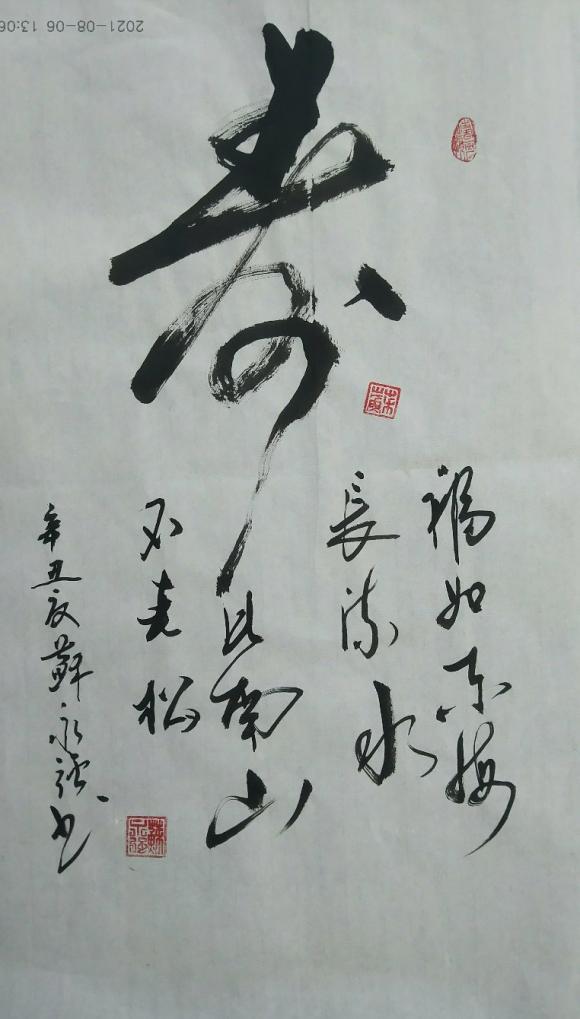 寿
福如东海
長流水
比南山
不老松
辛丑夏蘇永強书
2021-08-06 13:06